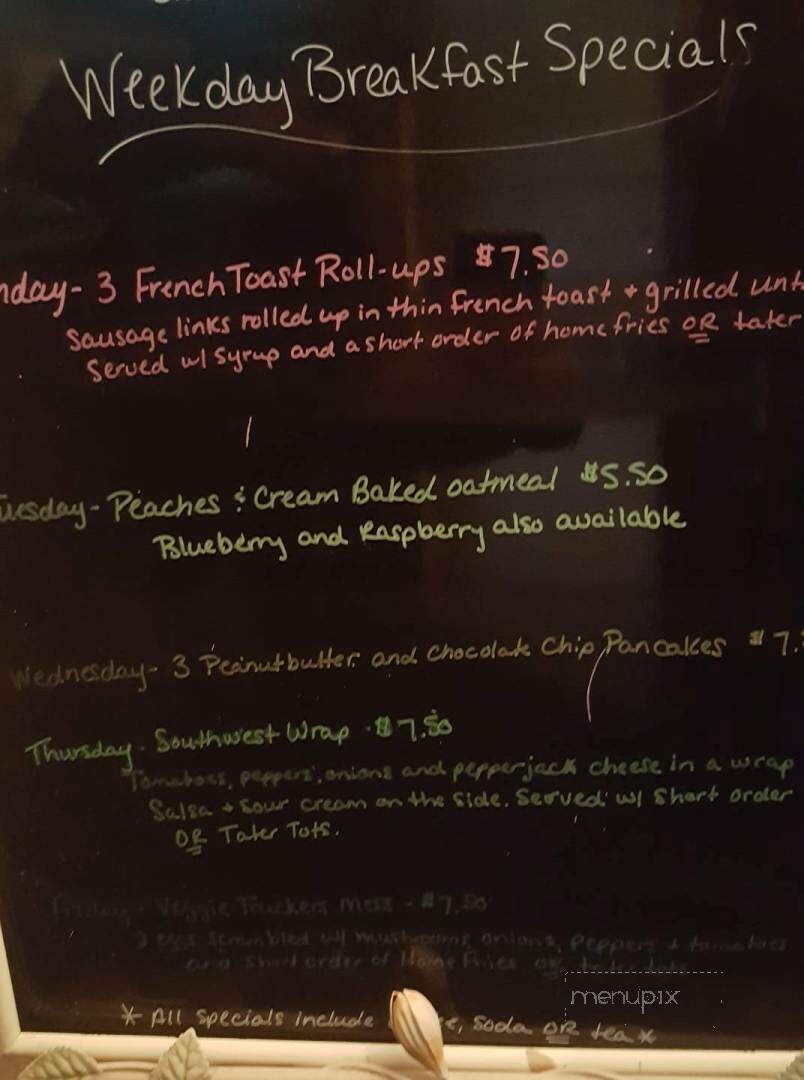 Weekday Breakfast Specials
nday - 3 French Toast Roll-ups $7.50
Sausage links rolled up in thin french toast + grilled unt
Served w/ syrup and a short order of home fries OR tater
uesday - Peaches & Cream Baked oatmeal $5.50
Blueberry and Raspberry also available
Wednesday - 3 Peanutbutter and Chocolate Chip Pancakes $7.
Thursday - Southwest Wrap - $7.50
Tomatoes, peppers, onions and pepperjack cheese in a wrap
Salsa + sour cream on the side. Served w/ short order
OR Tater Tots.
Friday - Veggie Truckers Mess - $7.50
3 eggs scrambled w/ mushrooms, onions, peppers + tomatoes
and short order of Home Fries or tater tots
menupix
* All specials include e, soda OR tea *